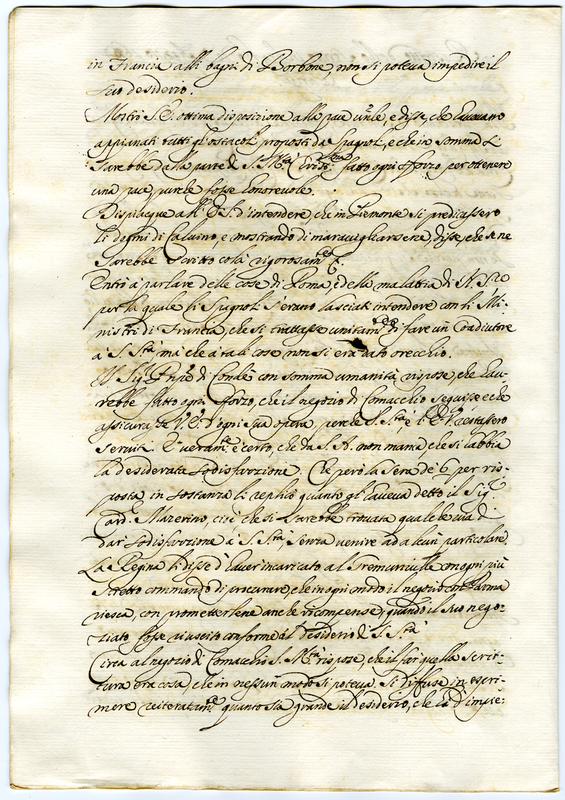 in Francia alli bagni di Borbone, non si poteva impedire il
suo desiderio.
Mostrò S. E. ottima disposizione alla pace univle, e disse, che l'avevano
appianati tutti gl'ostacoli proposti da Spagnoli, e che in somma si
sarebbe dalla parte di S. Mtà Cristma fatto ogni sforzo per ottenere
una pace, purche fosse honorevole.
Dispiacque a d'intendere, che in Piemonte si predicassero
li dogmi di Calvino, e mostrando di maravigliarsene, disse, che se ne
sarebbe scritto colà rigorosamte.
Entrò à parlare delle cose di Roma, e della malattia di N. Sre
per la quale li Spagnoli s'erano lasciati intendere con li Mi-
nistri di Francia, che si trattasse unitamte di fare un Coadiutore
à S. Stà, ma che à tali cose non si era dato orecchio.
Il Sigr Prnpe di Condè con somma umanità rispose, che hav-
rebbe fatto ogni sforzo, che il negozio di Comacchio seguisse, e che
assicurasse V. E. d'ogni sua opera, perche S. Stà e restassero
serviti. E veramte è certo, che da S. A. non manca che si habbia
la desiderata sodisfazzione. Che però la sera de' 6 per ris-
posta in sostanza li replicò quanto gl'haveva detto il Sigr
Card. Mazerino, cioè che si sarebbe trovata qualche via di
dar sodisfazzione à S. Stà senza venire ad alcun particolare.
La Regina li disse d'haver incaricato al Tremouville con ogni più
stretto commando di procurare, che in ogni modo il negozio con Parma
riesca, con promettersene anche ricompense, quando il suo nego-
ziato fosse riuscito conforme il desiderio di S. Stà
Circa al negozio di Comacchio S. Mtà rispose, che il far quella scrit-
tura era cosa, che in nessun modo si poteva. Si diffuse in espri-
mere reiteratamte quanto sia grande il desiderio, che hà d'impie-